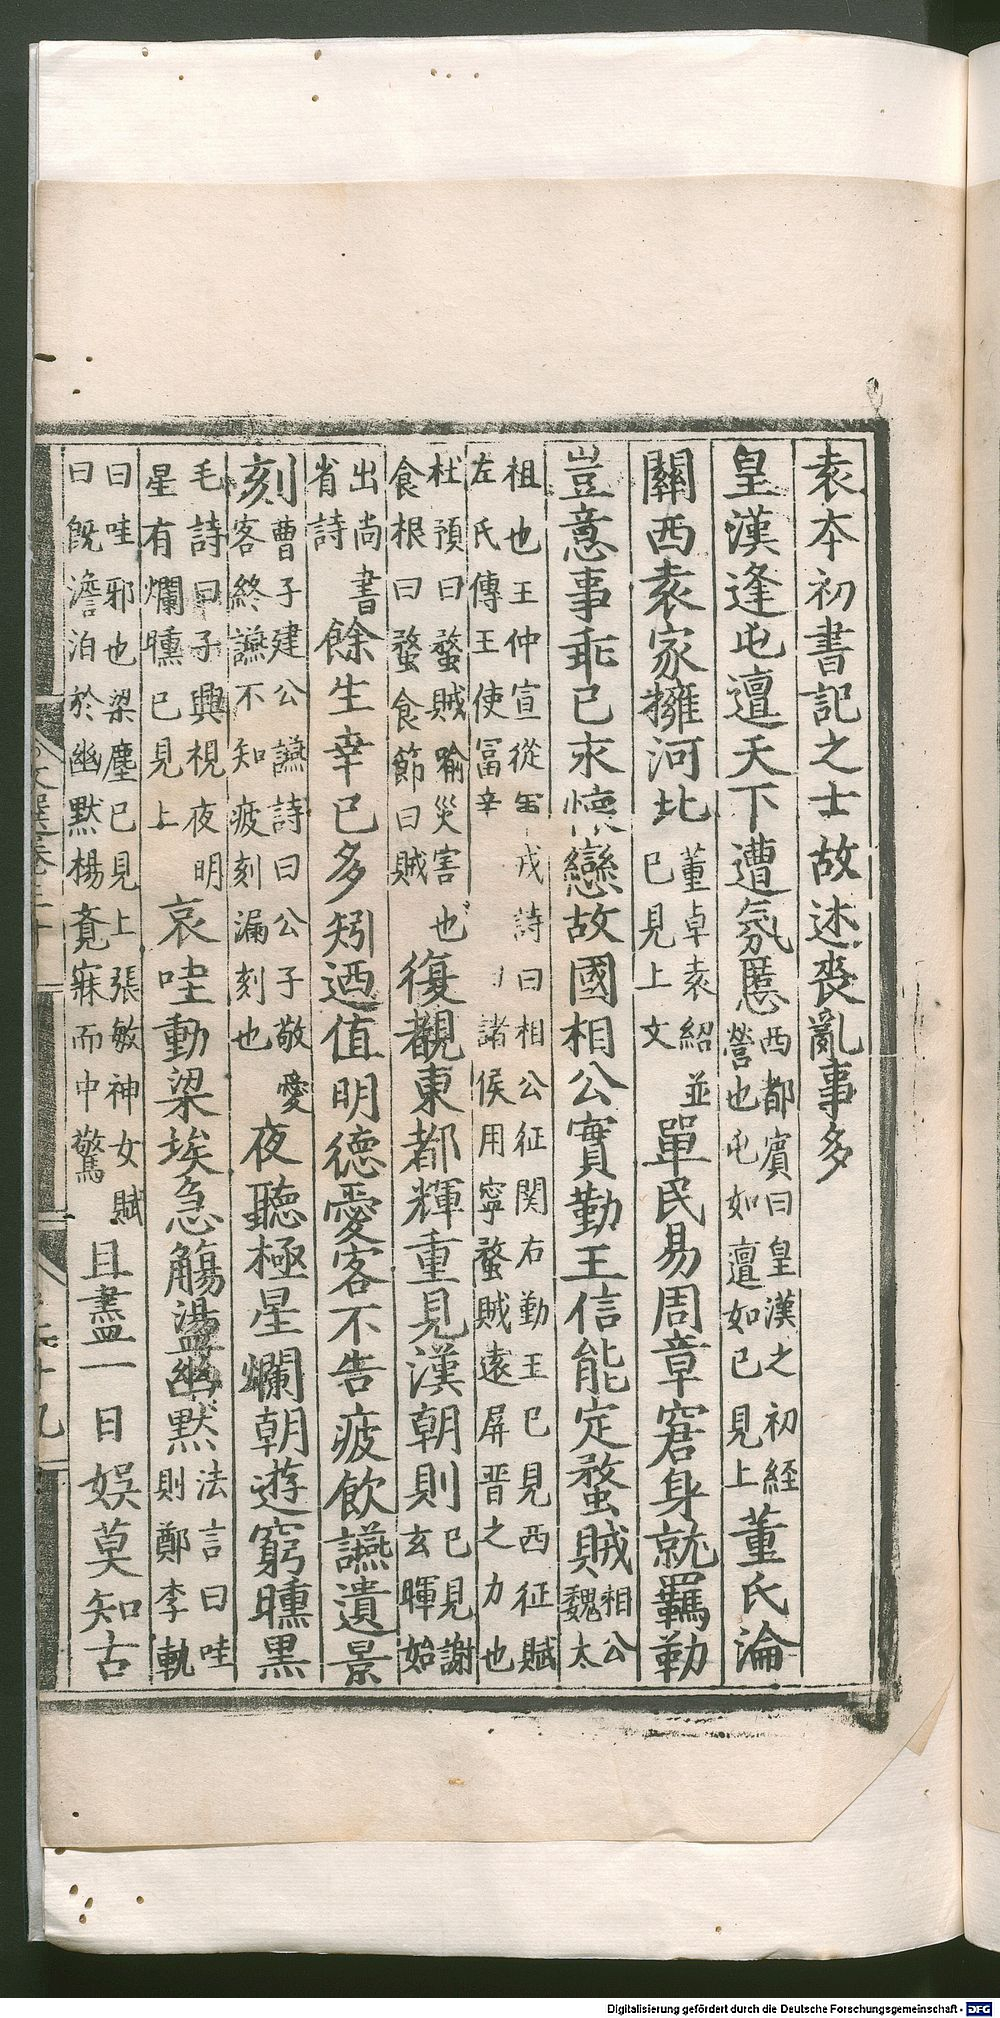 袁本初書記之士故述喪亂事多
皇漢逢屯邅天下遭氛慝西都賓曰皇漢之初經營也屯如邅如已見上董氏淪
關西袁家擁河北董卓袁紹並已見上文單民易周章窘身就羈勒
豈意事乖已永懷戀故國相公實勤王信能定蝥賊相公魏太
祖也王仲宣從軍戎詩曰相公征関右勤王已見西征賦左氏傳王使冨辛諸侯用寧蝥賊遠屏晋之力也
杜預曰蝥賊喻災害也食根曰蝥食節曰賊復覩東都輝重見漢朝則已見謝玄暉始
出尚書省詩餘生幸已多矧迺值明德愛客不告疲飲讌遺景
刻曹子建公讌詩曰公子敬愛客終讌不知疲刻漏刻也夜聽極星爛朝遊窮曛黑
毛詩曰子興視夜明星有爛曛已見上哀哇動梁埃急觴盪幽黙法言曰哇則鄭李軌
曰哇邪也梁塵已見上張敏神女賦曰旣澹泊於幽黙楊覔寐而中驚且盡一日娛莫知古
文選卷
Digitalisierung gefördert durch die Deutsche Forschungsgemeinschaft - DFG